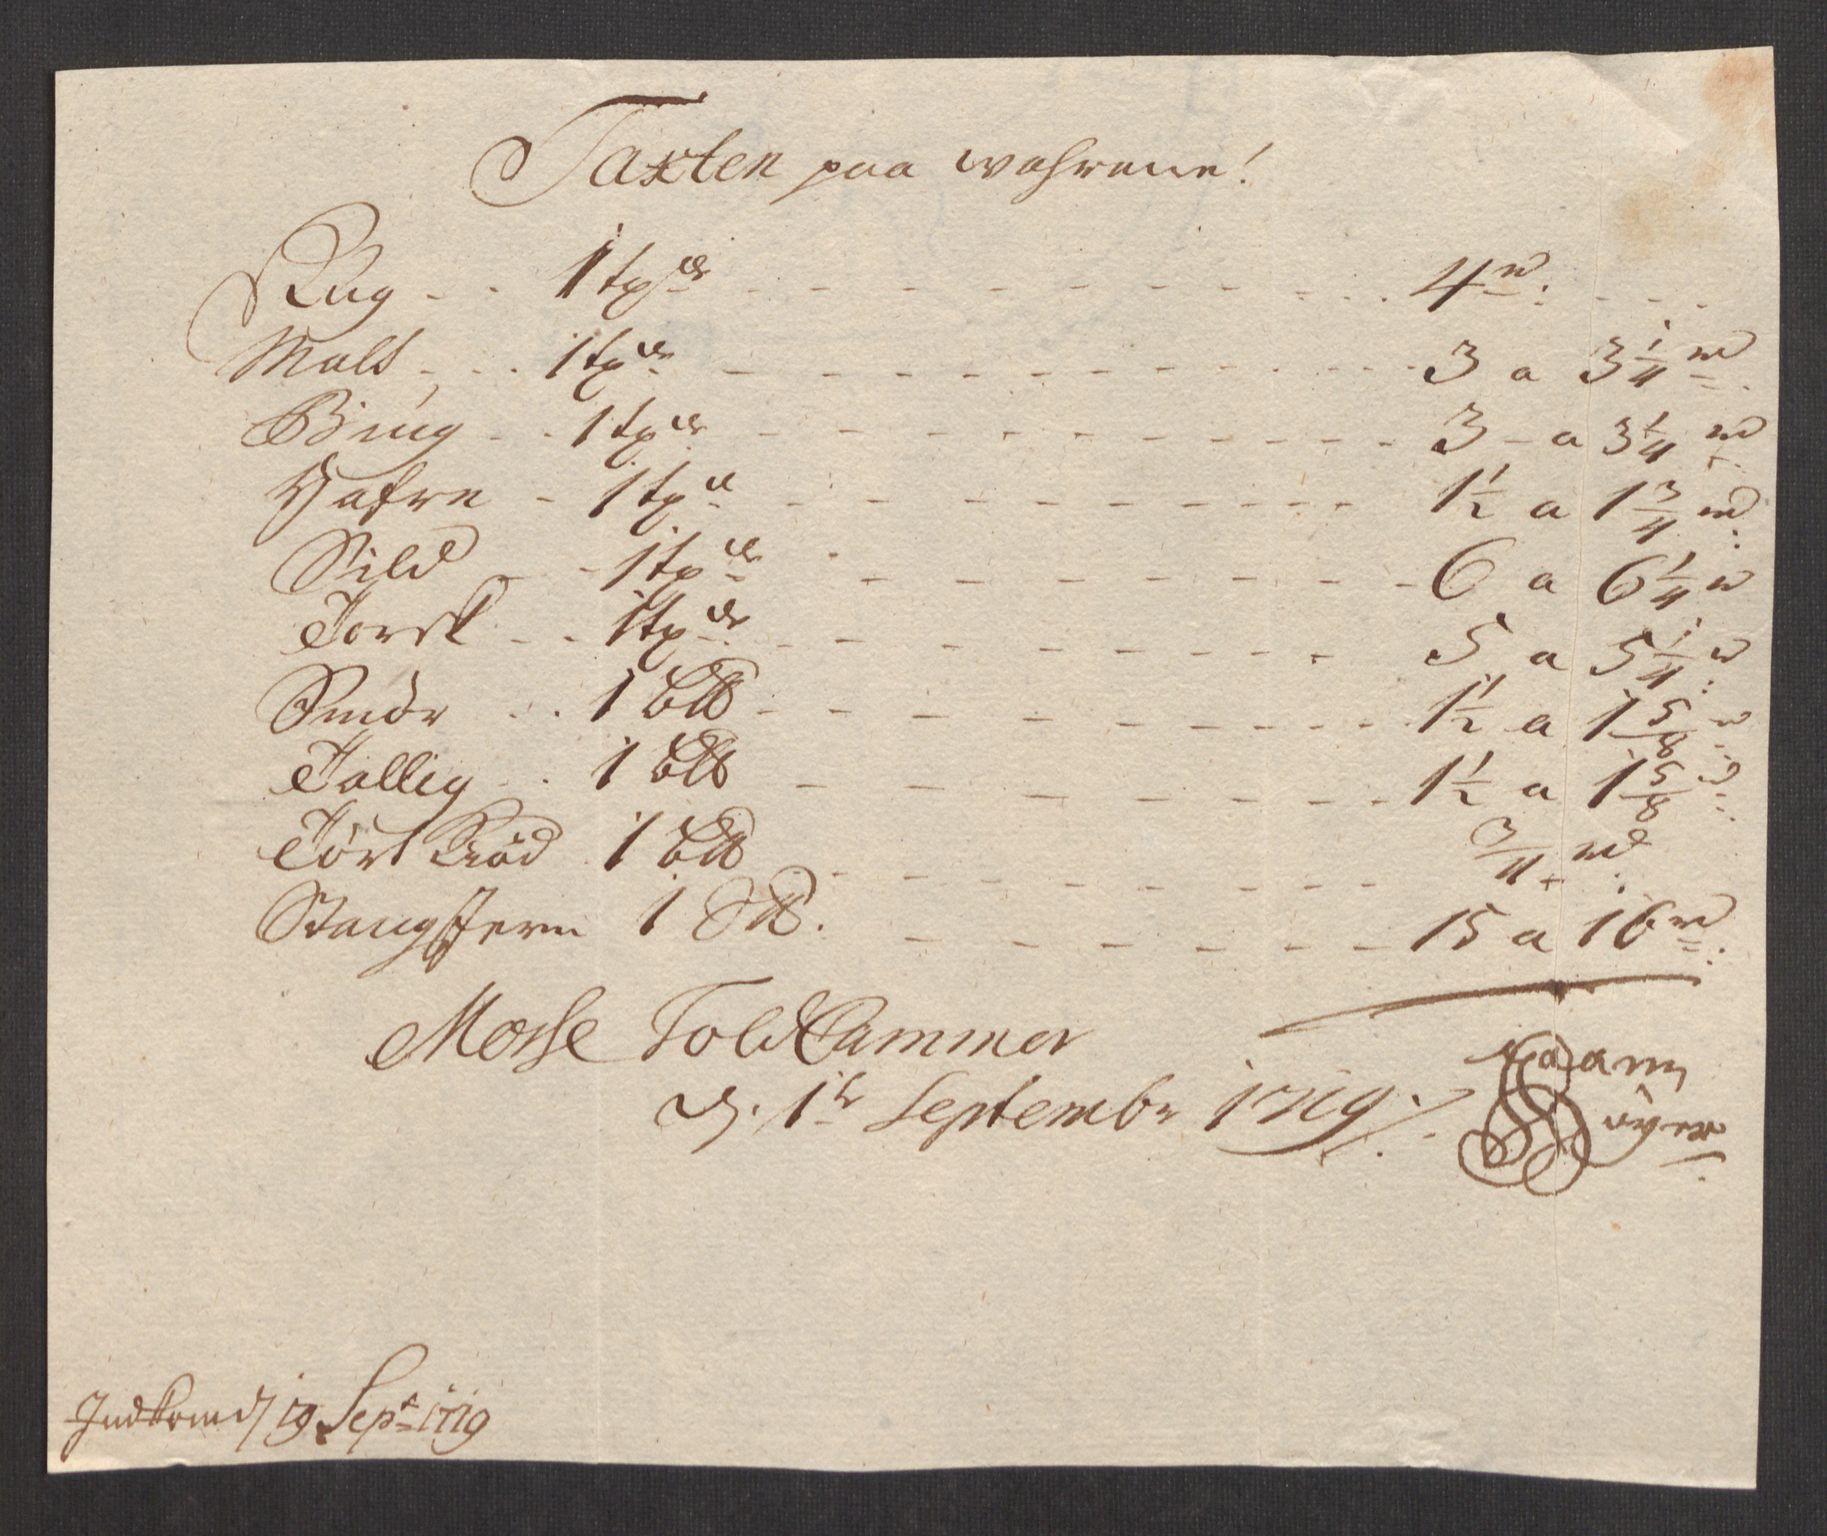 Taxten paa wahrene!
Rug - - 1 tøde - - - 4 rd: - - -
Malt - - 1 tøde - - - 3 a 3 1/4 rd
Biug - - 1 tøde - - - 3 - a 3 1/4 rd
Hafre - 1 tøde - - - 1 1/2 a 1 3/4 rd:
Sild - - 1 tøde - - - 6 a 6 1/4 rd
Torsk - - 1 tøde - - - 5 a 5 1/4 rd:
Smör - - 1 B℔ - - - 1 1/2 a 1 5/8 rd
Tallig - - 1 B℔ - - - 1 1/2 a 1 5/8 rd:
Tört Kiöd 1 B℔ - - - 3/4 rd:
Stang Jern 1 S℔. - - - 15 a 16 rd:
Mosse Told Cammer
d. 1te Septembr 1719.
Indkom d 19 Sept 1719